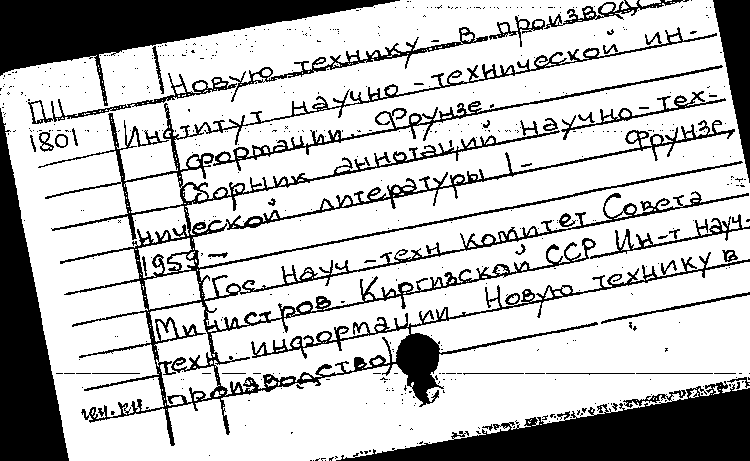 Новую технику - в производс
П11
1801 Институт научно-технической ин-
формации. Фрунзе.
Сборник аннотаций научно-тех-
нической литературы 1- Фрунзе,
1959-
(Гос. науч-техн комитет Совета
Министров. Киргизской ССР Ин-т науч-
техн. информации. Новую технику в
производство)